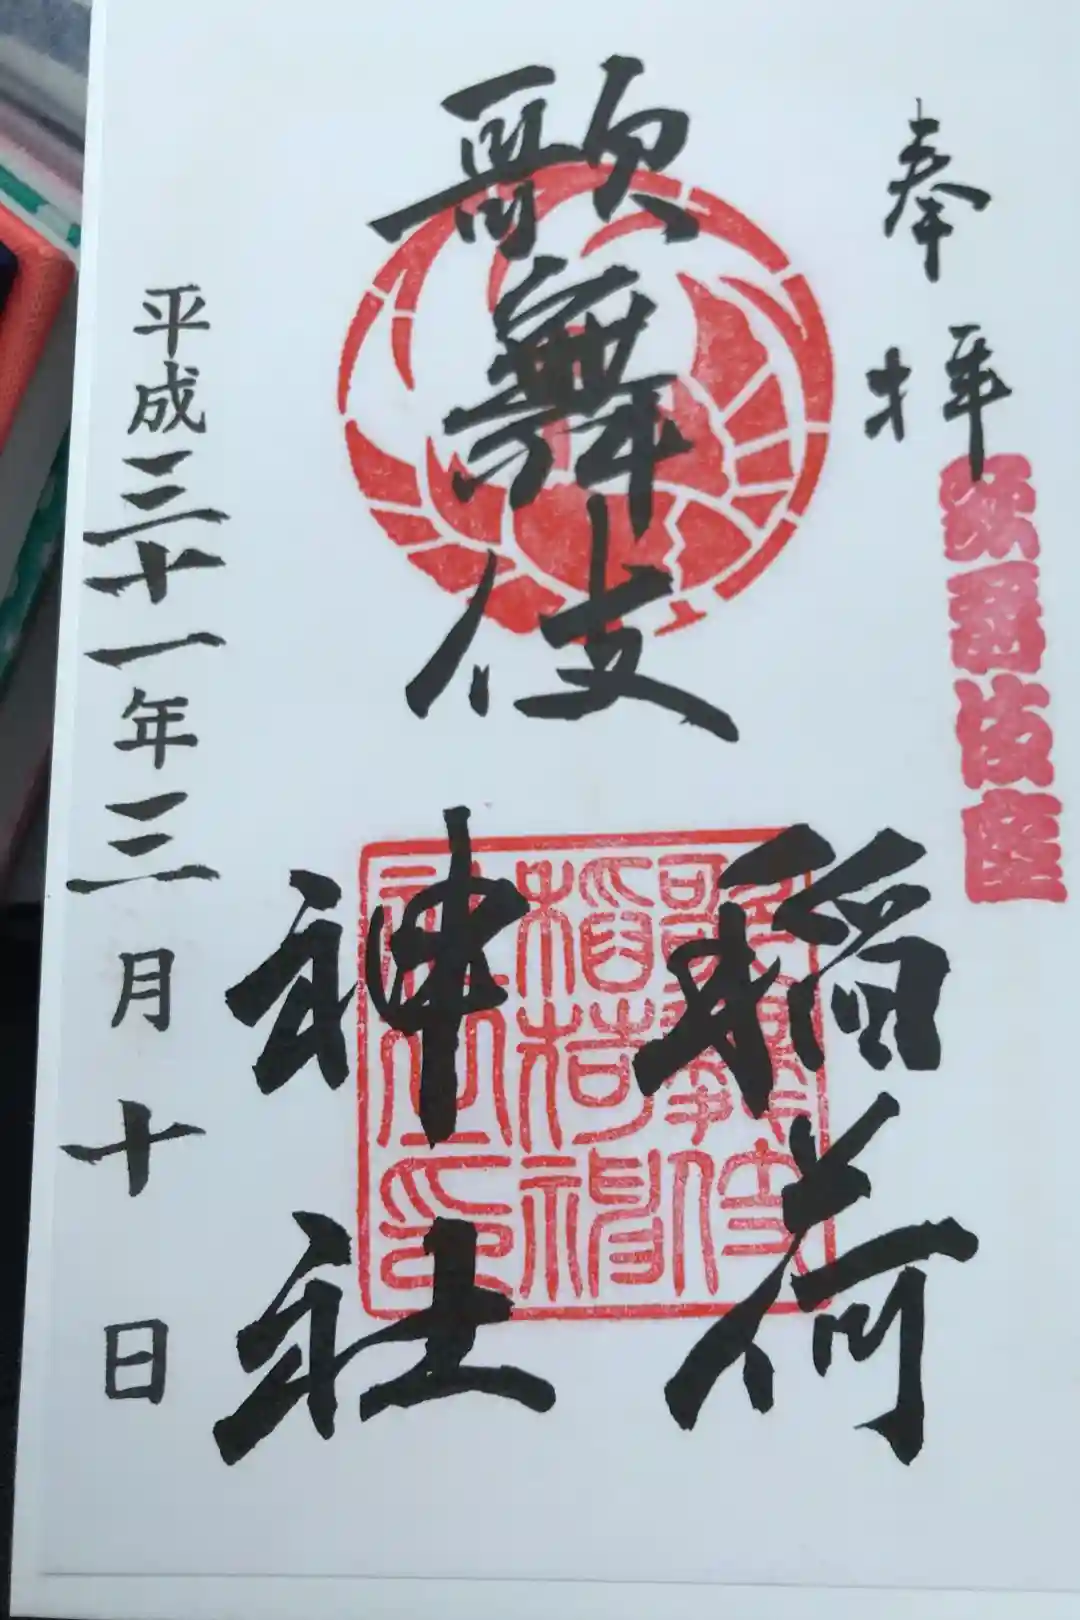 奉拝
歌舞伎座
歌舞伎
稲荷
神社
歌舞伎
稲荷神
社之印
平成三十一年三月十日